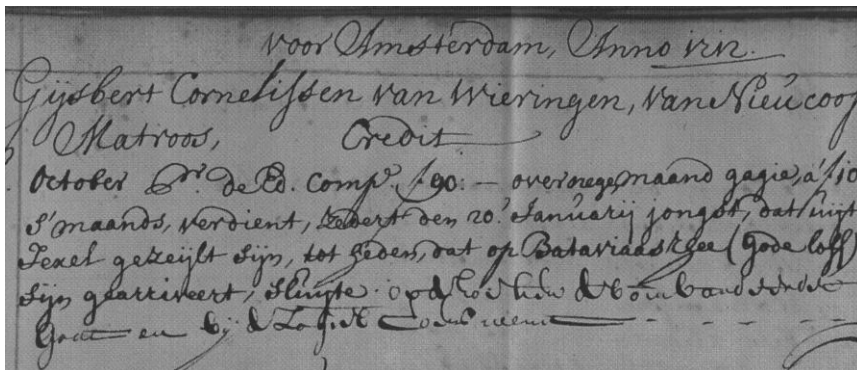 voor Amsterdam, Anno 1712.
Gijsbert Cornelissen van Wieringen, van Nieucoop
Matroos, Credit
October Pr. de Ed. Compe. ƒ90:— over nege, maand gagie, a ƒ10
s'maands, verdient, zedert den 20:' Januarij jongst, dat uijt
Texel gezeijlt sijn, tot heden, dat op Bataviaas Rhee (gode loff)
sijn gearriveert, sluijte